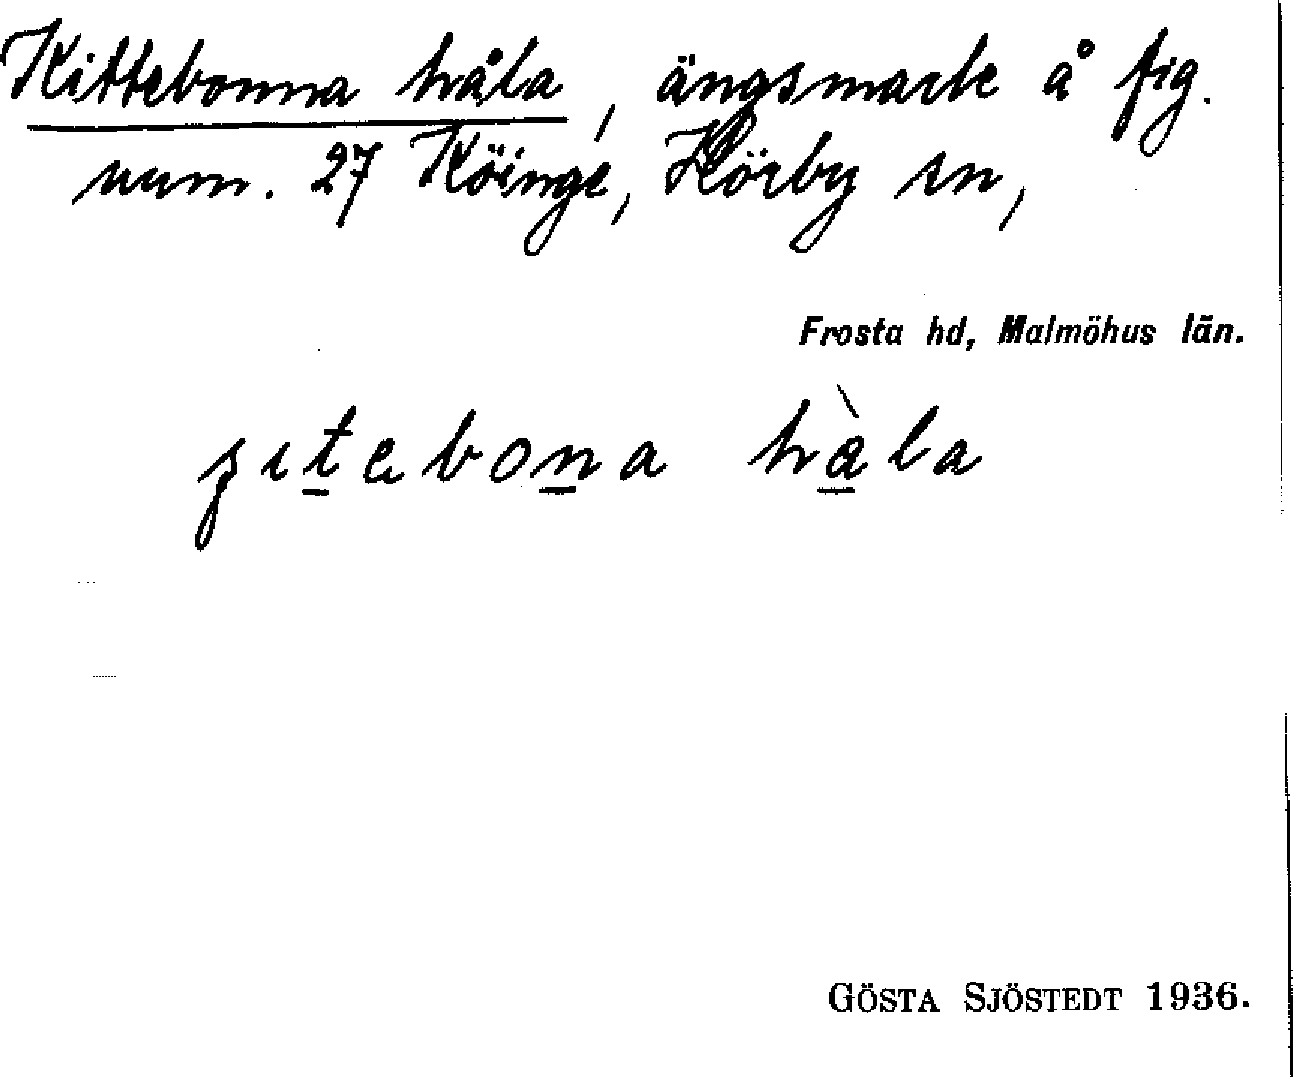 Kittebonna håla, ängsmark å fig.
num. 27 Köinge, Hörby sn,
Frosta hd, Malmöhus län.
ʒıtebona hàla
GÖSTA SJÖSTEDT 1936.